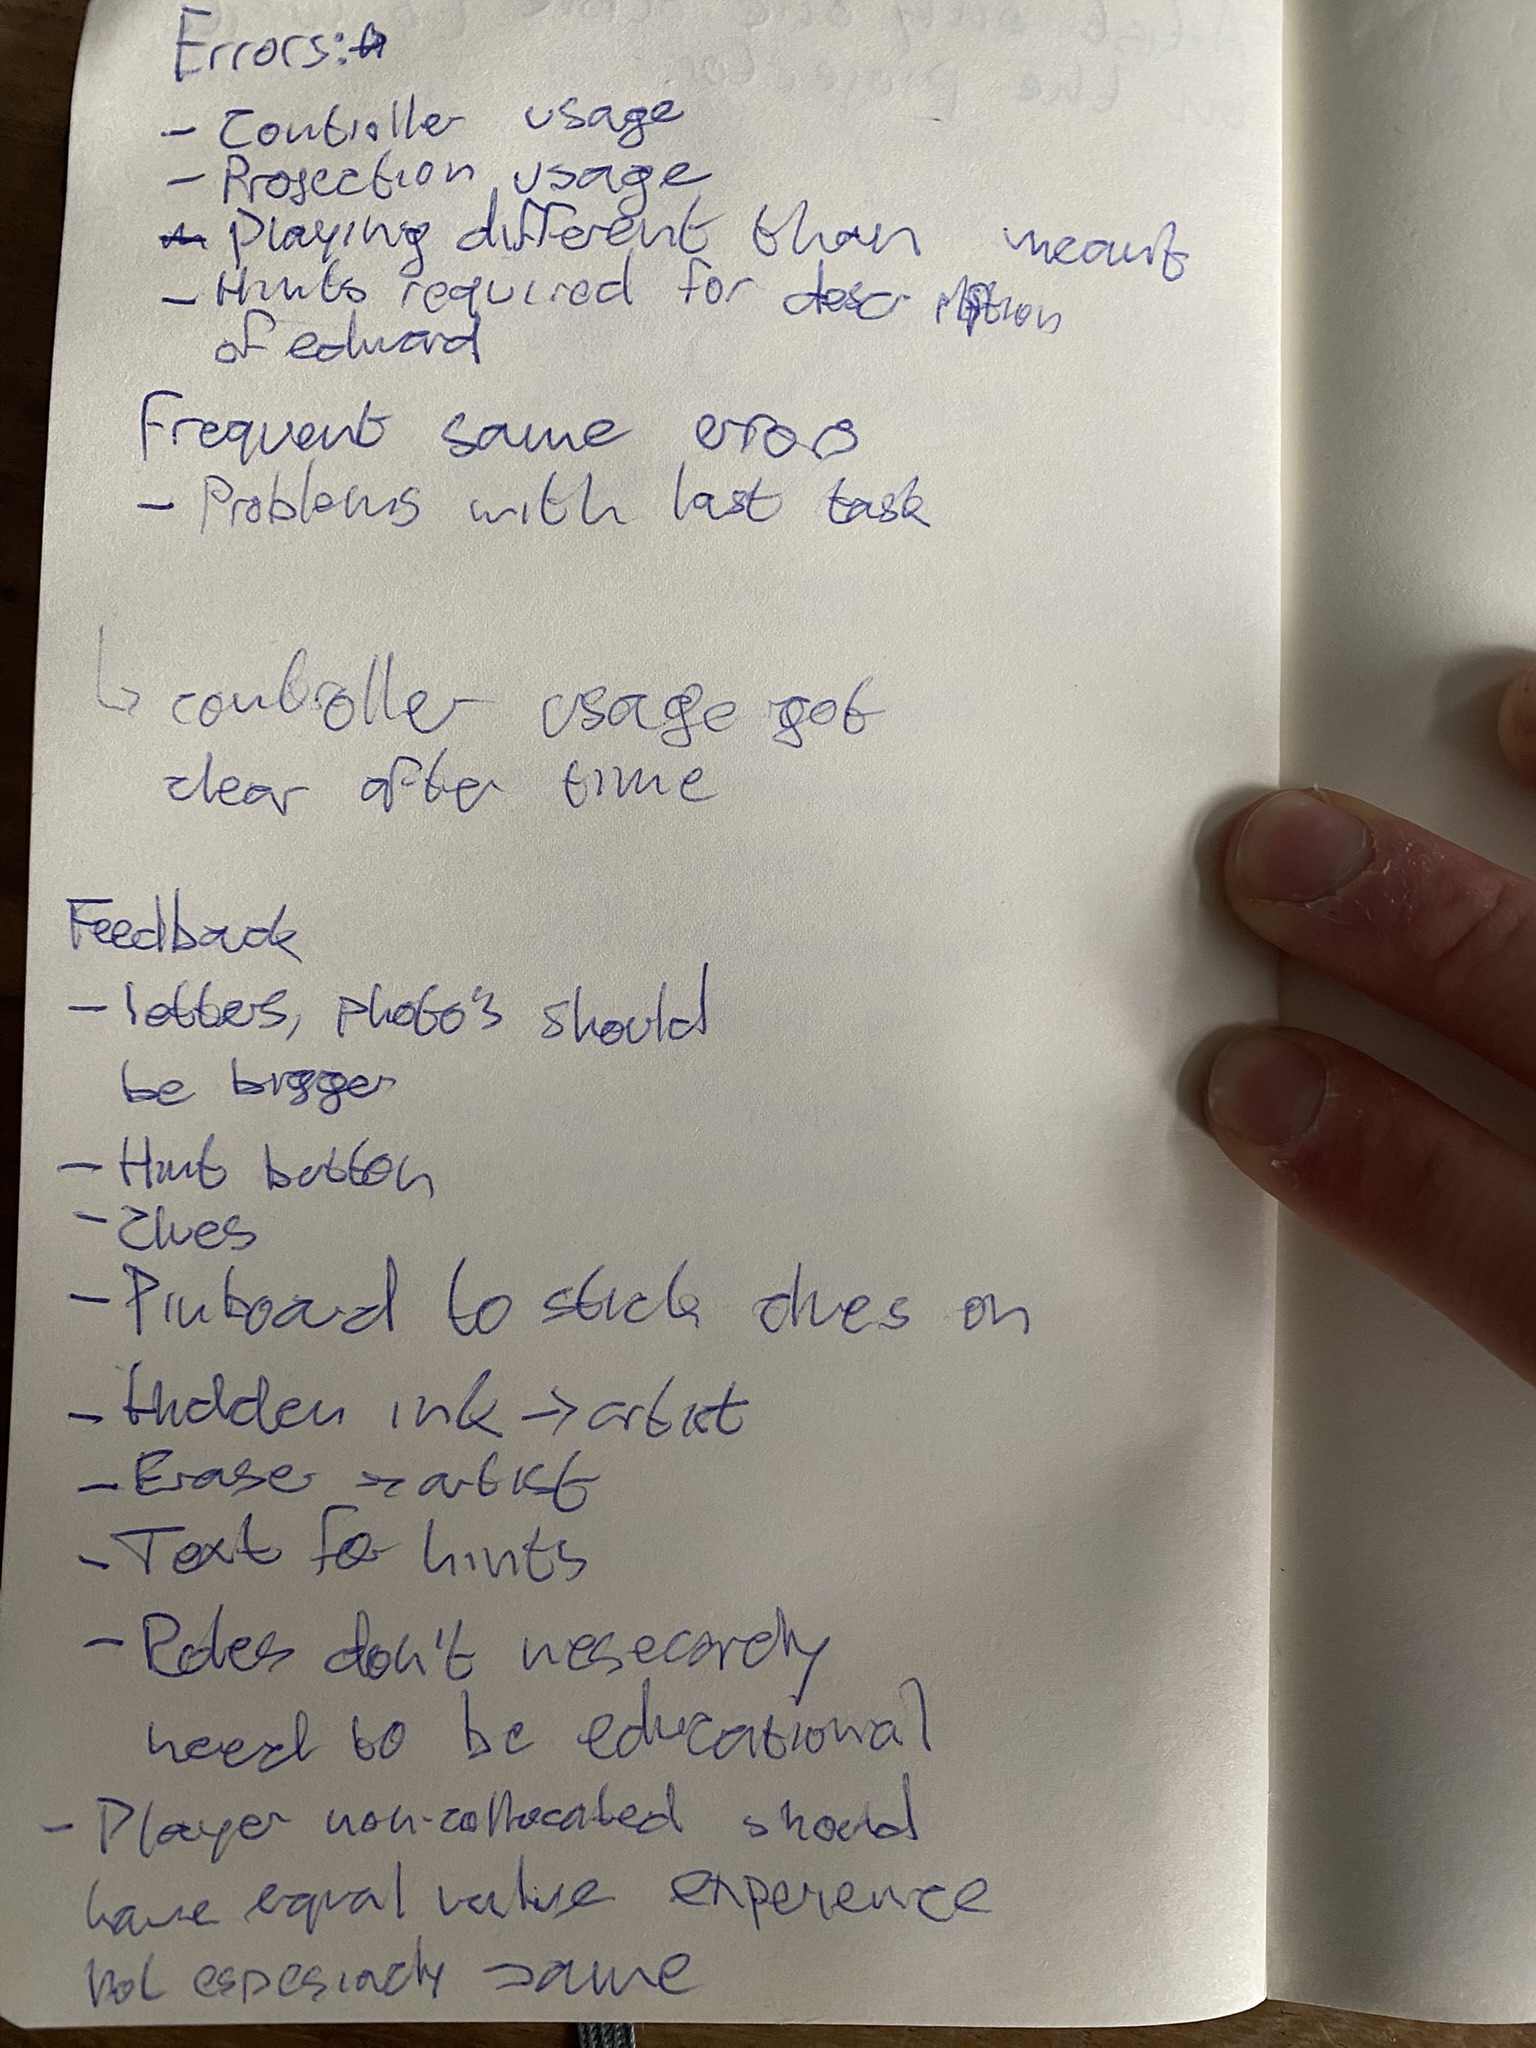 Errors:
- Controller usage
- Projection usage
- Playing different than meant
- Hints required for description
of edward
Frequent same errors
- Problems with last task
↳ controller usage got
clear after time
Feedback
- letters, photo's should
be bigger
- Hint button
- Clues
- Pinboard to stick clues on
- Hidden ink → artist
- Eraser → artist
- Text for hints
- Roles don't nesecardy
need to be educational
- Player non-collocated should
have equal value experience
not espesiady same